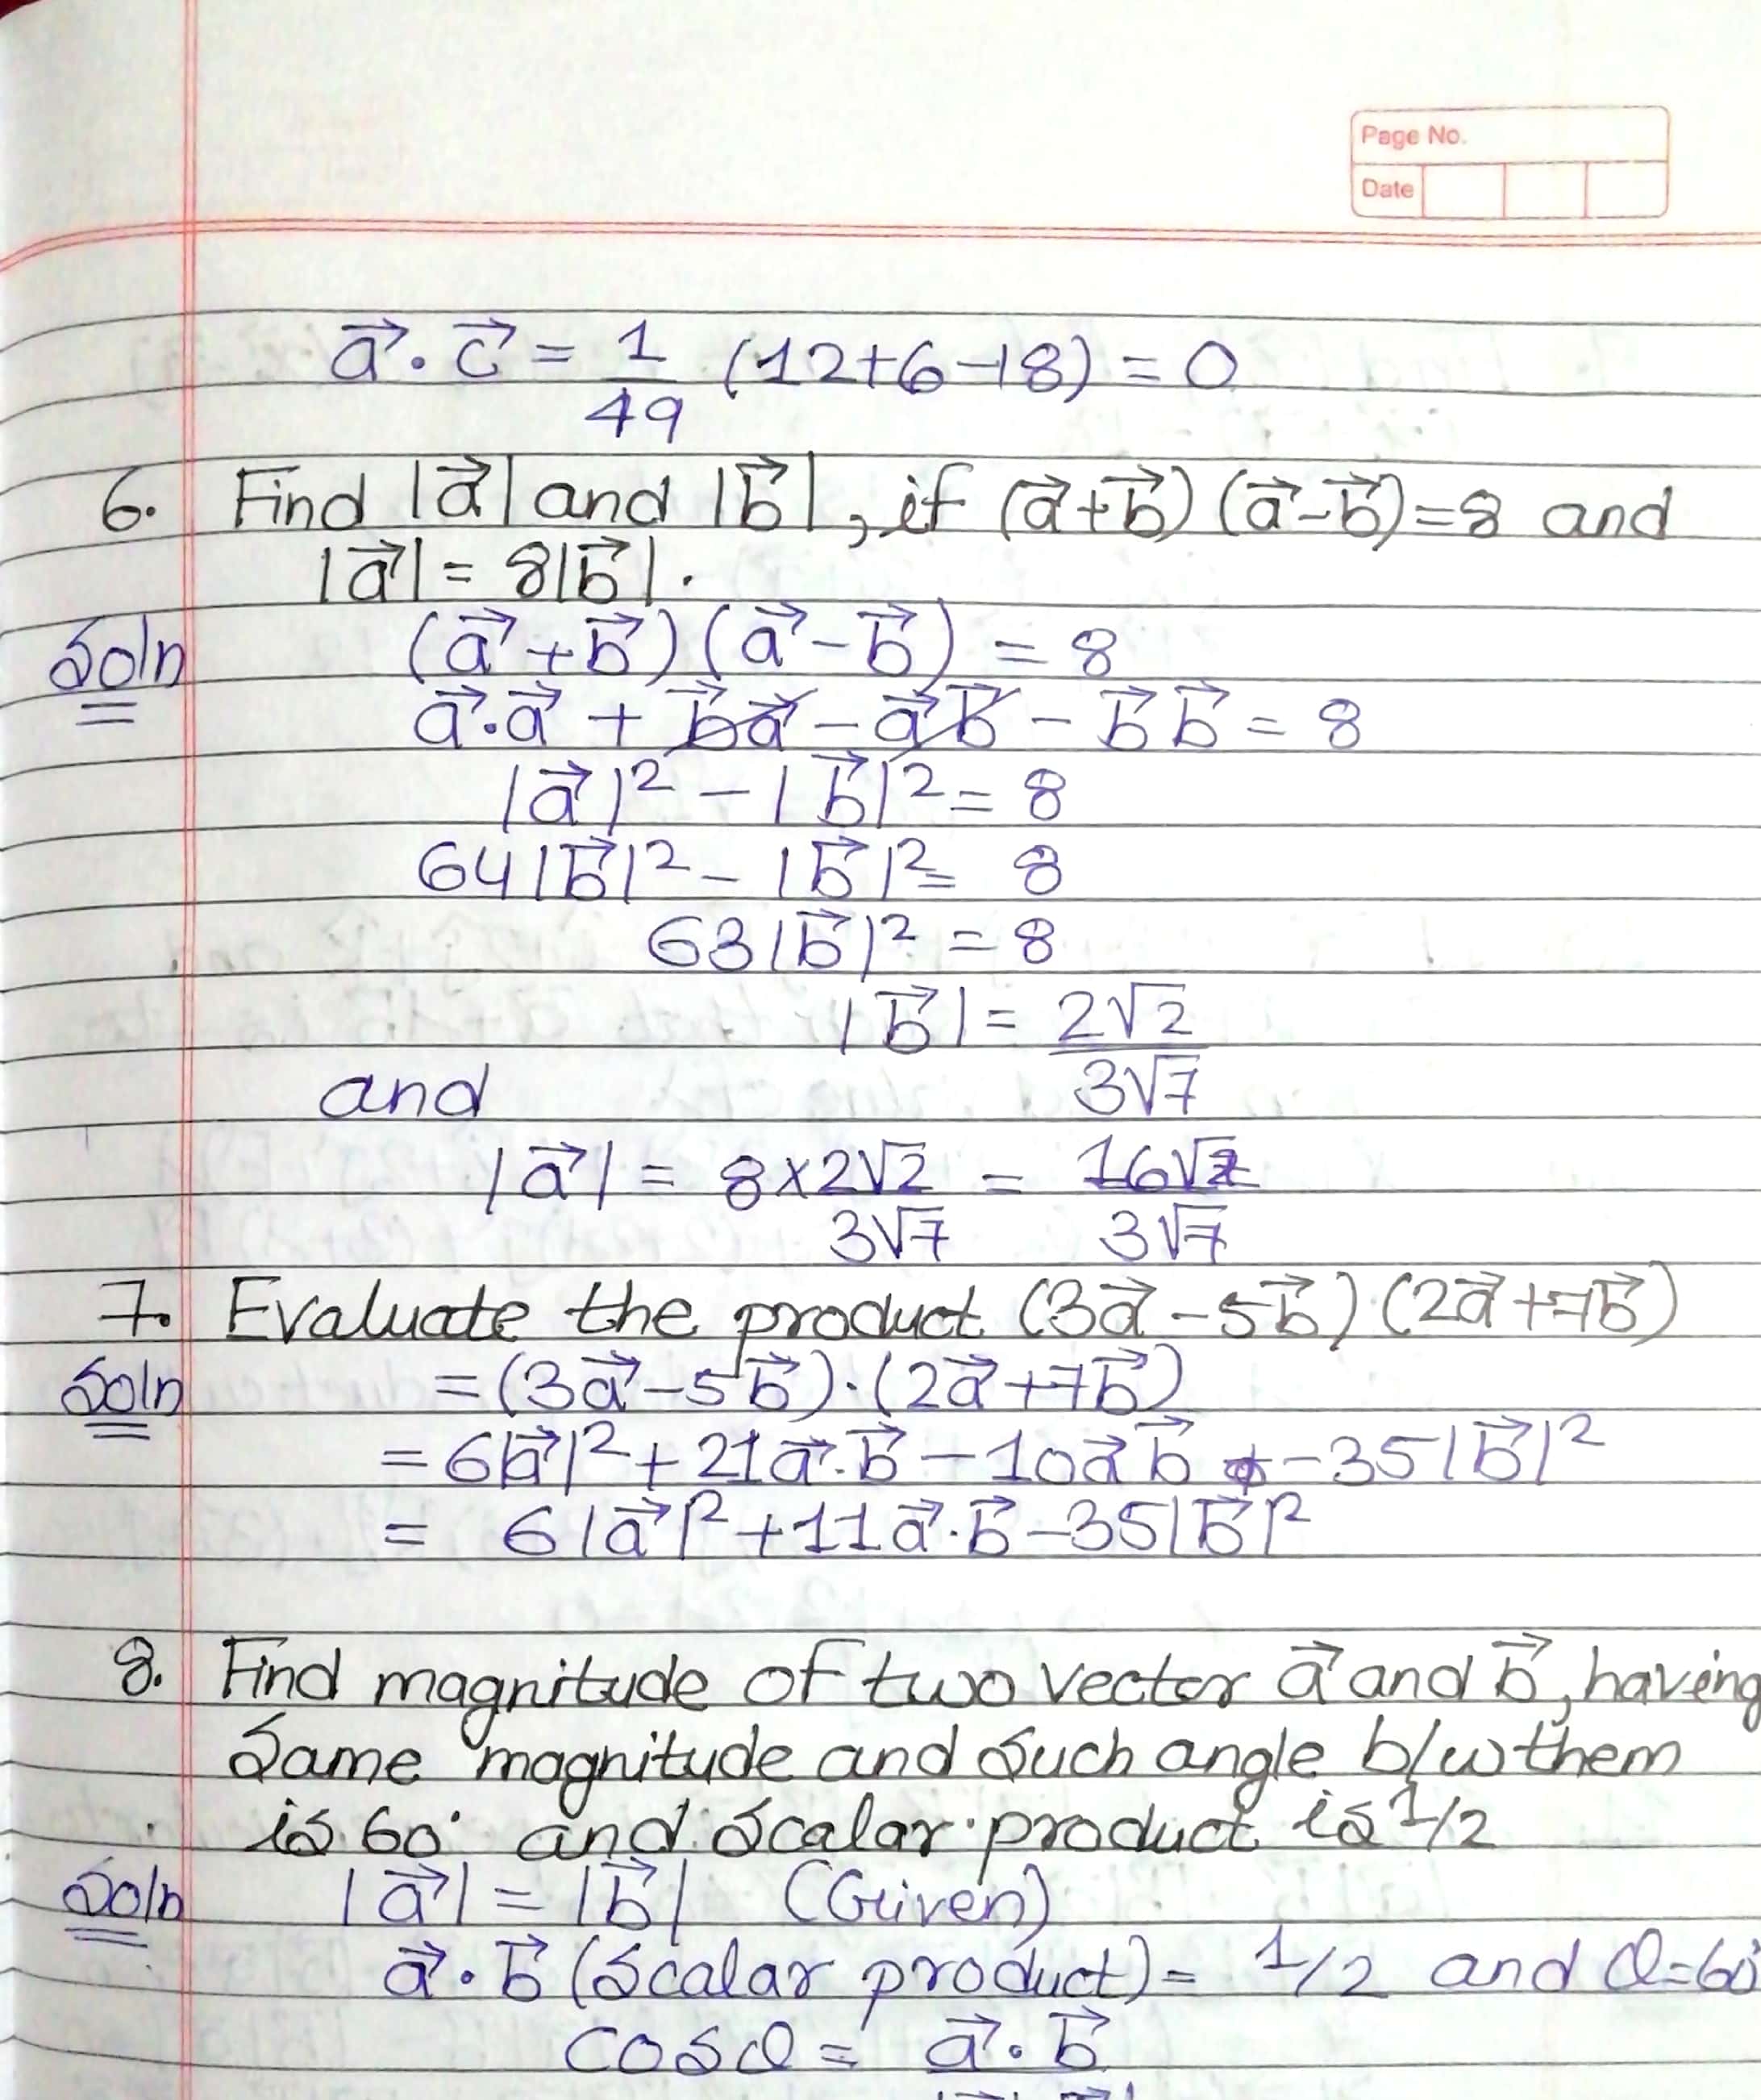 Page No.
Date
a⃗ · c⃗ = 1/49 (12+6-18) = 0
6. Find |a⃗| and |b⃗|, if (a⃗+b⃗) (a⃗-b⃗)=8 and
|a⃗| = 8|b⃗|.
Soln (a⃗+b⃗) (a⃗-b⃗) = 8
a⃗·a⃗ + b⃗a⃗ - a⃗b⃗ - b⃗b⃗ = 8
|a⃗|² - |b⃗|² = 8
64|b⃗|² - |b⃗|² = 8
63|b⃗|² = 8
|b⃗| = 2√2/3√7
and
|a⃗| = 8×2√2/3√7 = 16√2/3√7
7. Evaluate the product (3a⃗-5b⃗)·(2a⃗+7b⃗)
Soln = (3a⃗-5b⃗)·(2a⃗+7b⃗)
= 6|a⃗|² + 21a⃗·b⃗ - 10a⃗b⃗ - 35|b⃗|²
= 6|a⃗|² + 11a⃗·b⃗ - 35|b⃗|²
8. Find magnitude of two vector a⃗ and b⃗, having
Same magnitude and such angle b/w them
is 60° and scalar product is 1/2
Soln |a⃗| = |b⃗| (Given)
a⃗·b⃗ (Scalar product) = 1/2 and θ=60°
cosθ = a⃗·b⃗